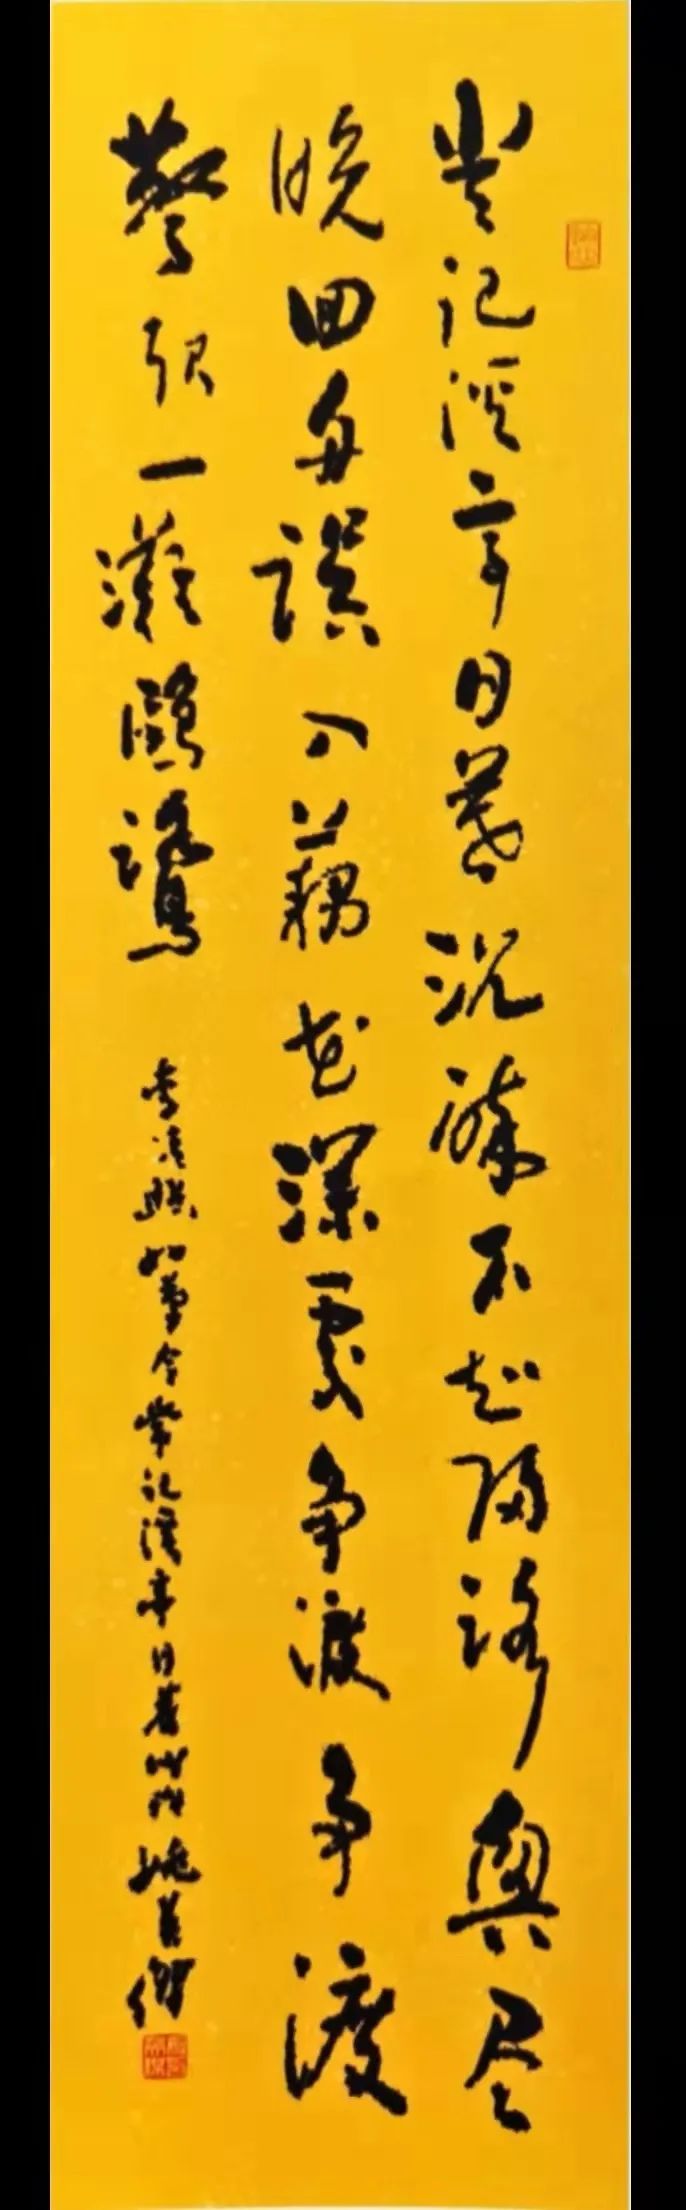 常记溪亭日暮沉醉不知归路兴尽
晚回舟误入藕花深处争渡争渡
惊起一滩鸥鹭
李清照如梦令常记溪亭日暮